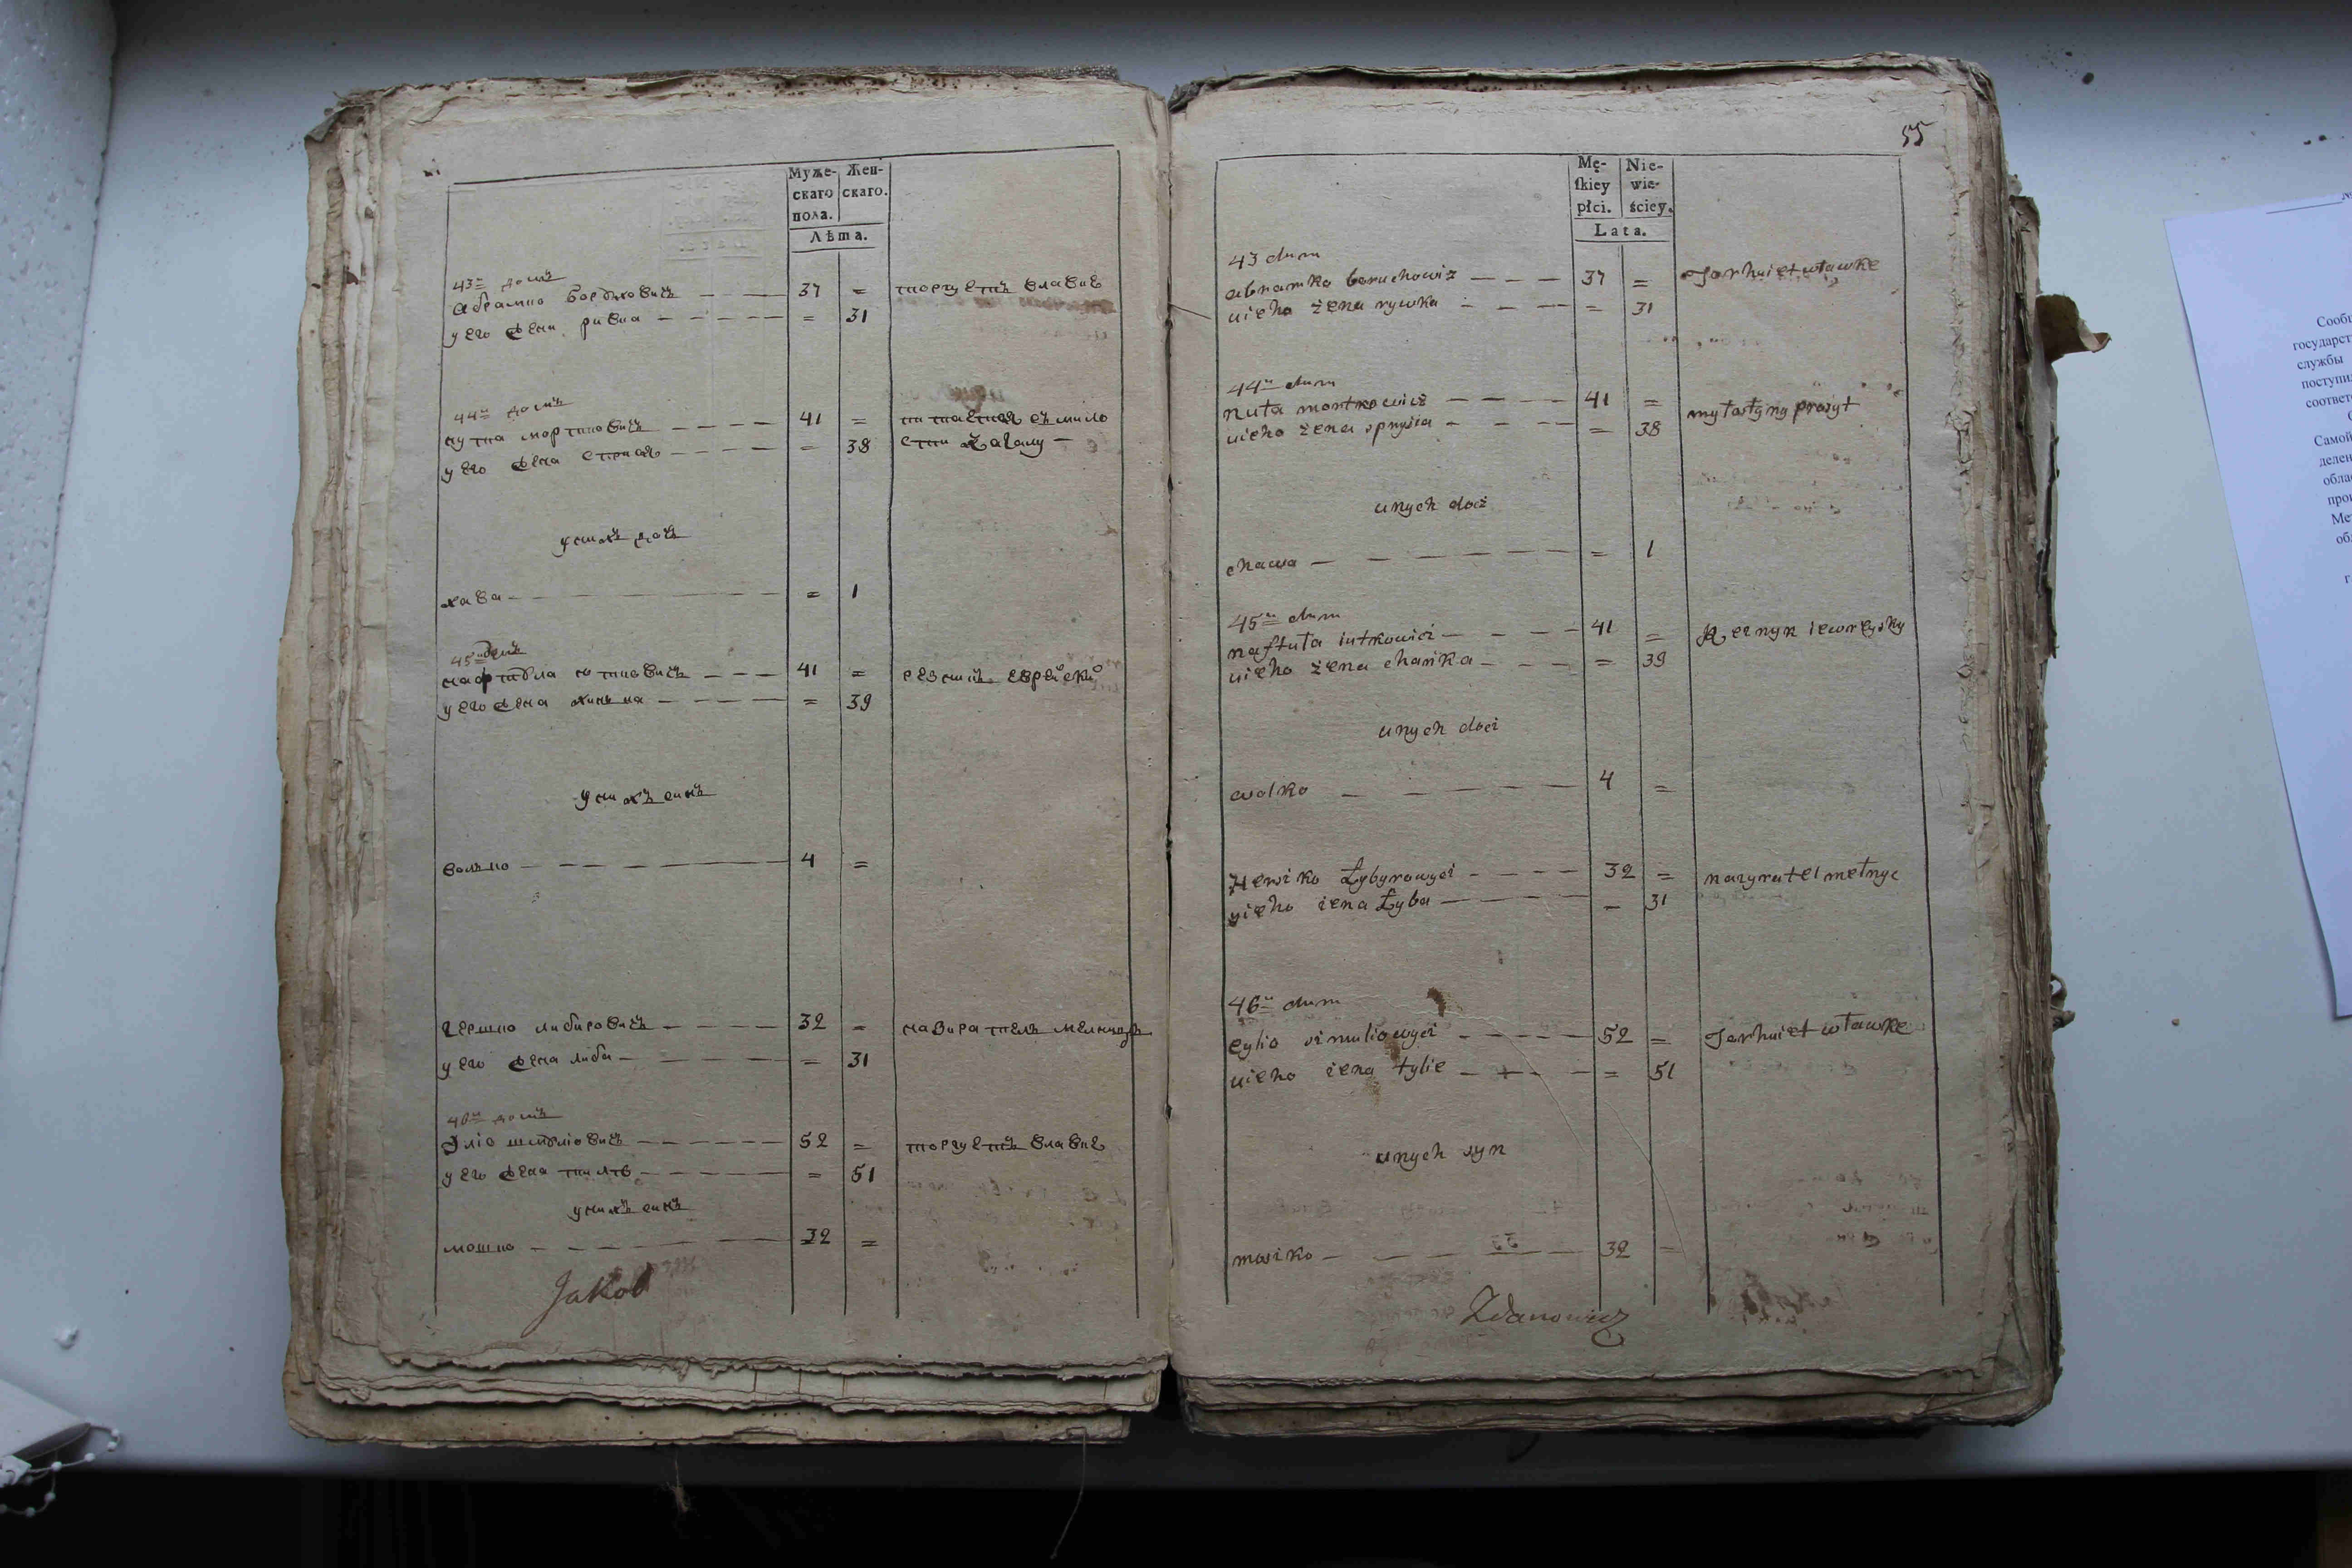 Муже-
скаго
пола.
Жен-
скаго.
Лѣта.
43 домъ
абрамко борухович 37 = торгуетъ влавке
у его жена ривка = 31
44 домъ
нутка мортковичъ 41 =
у его жена = 38
у нихъ дочь
хава = 1
45 домъ
нафтула ютковичъ 41 = резникъ еврейски
у его жена ханька = 39
у нихъ синъ
волько 4 =
гершко либировичъ 32 = назиратель мелницы
у его жена либа = 31
46 домъ
эліо шмуліовичъ 52 = торгуетъ влавке
у его жена = 51
у нихъ синъ
мошко 32 =
Jakob
55
Mę-
ſkiey
płci.
Nie-
wie-
ściey.
Lata.
43 dum
abramko boruchowiz 37 = Torhuiet wławke
uieho żena rywka = 31
44 dum
nuta mortkowicz 41 =
uieho żena = 38
unych docz
chawa = 1
45 dum
naftuła iutkowici 41 = Reznyk iewreysky
uieho żena chańka = 39
unych doci
wolko 4 =
Herszko Łybyrowyci 32 = nazyratel mełnyc
uieho zena Łyba = 31
46 dum
eylio szmuliowyci 52 = Torhuiet wławke
uieho zena tylie = 51
unych syn
moszko 32 =
Zdanowicz